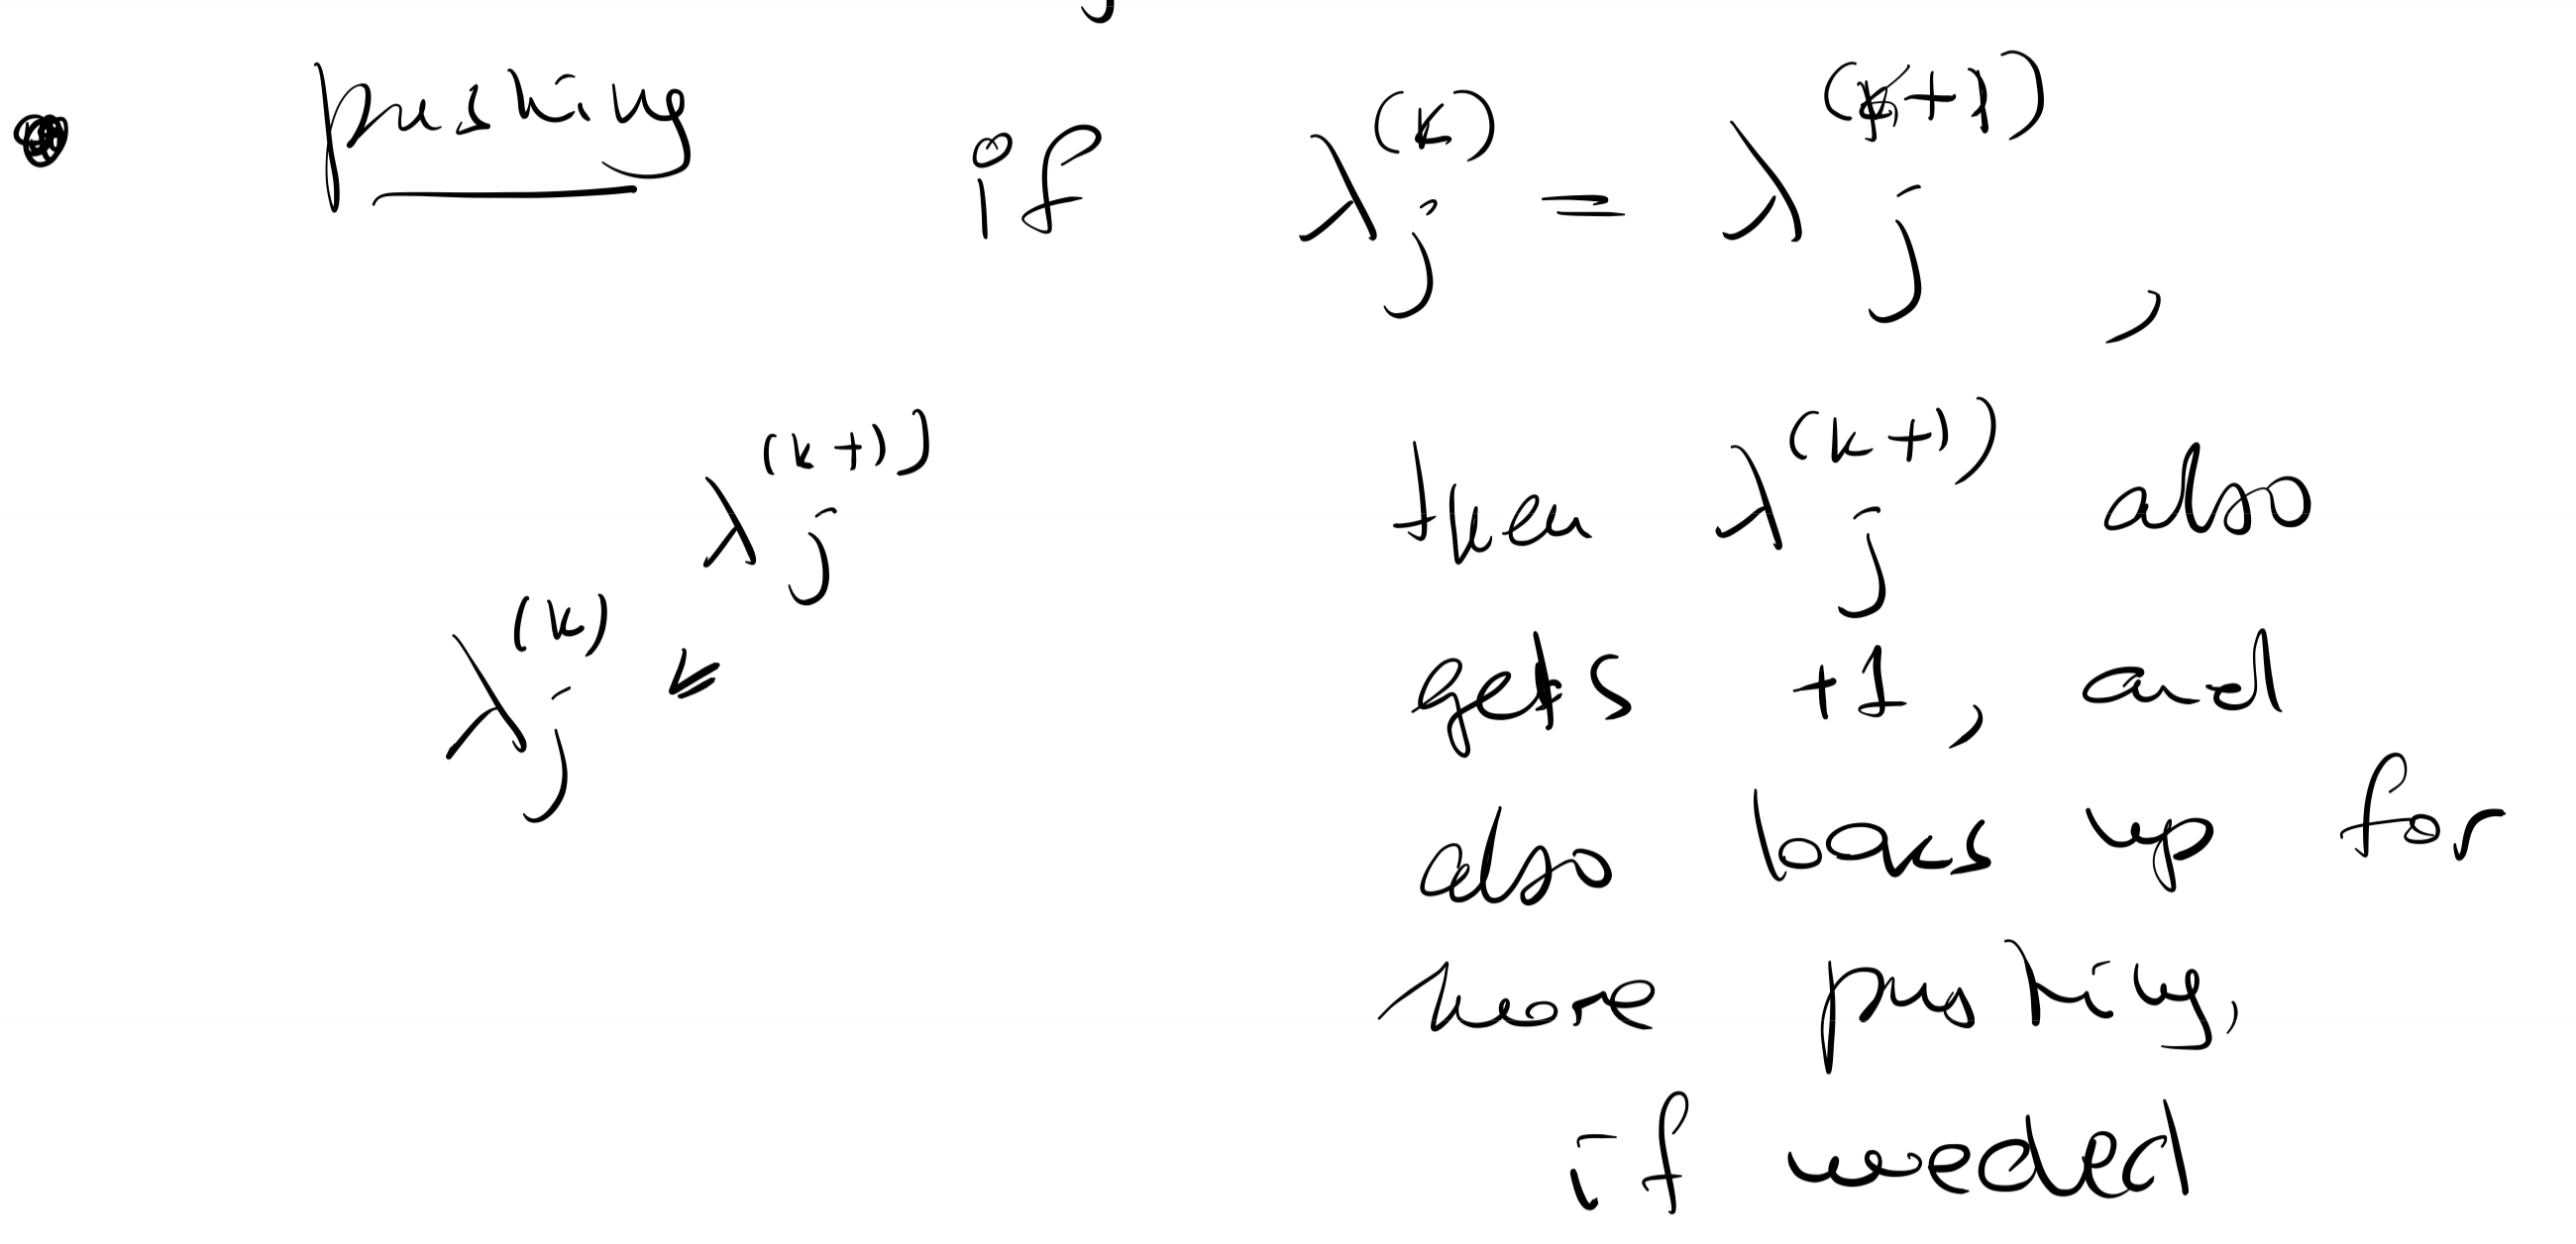 • pushing if λ_j^{(k)} = λ_j^{(k+1)},
λ_j^{(k)} ≤ λ_j^{(k+1)}
then λ_j^{(k+1)} also
gets +1, and
also looks up for
more pushing,
if needed